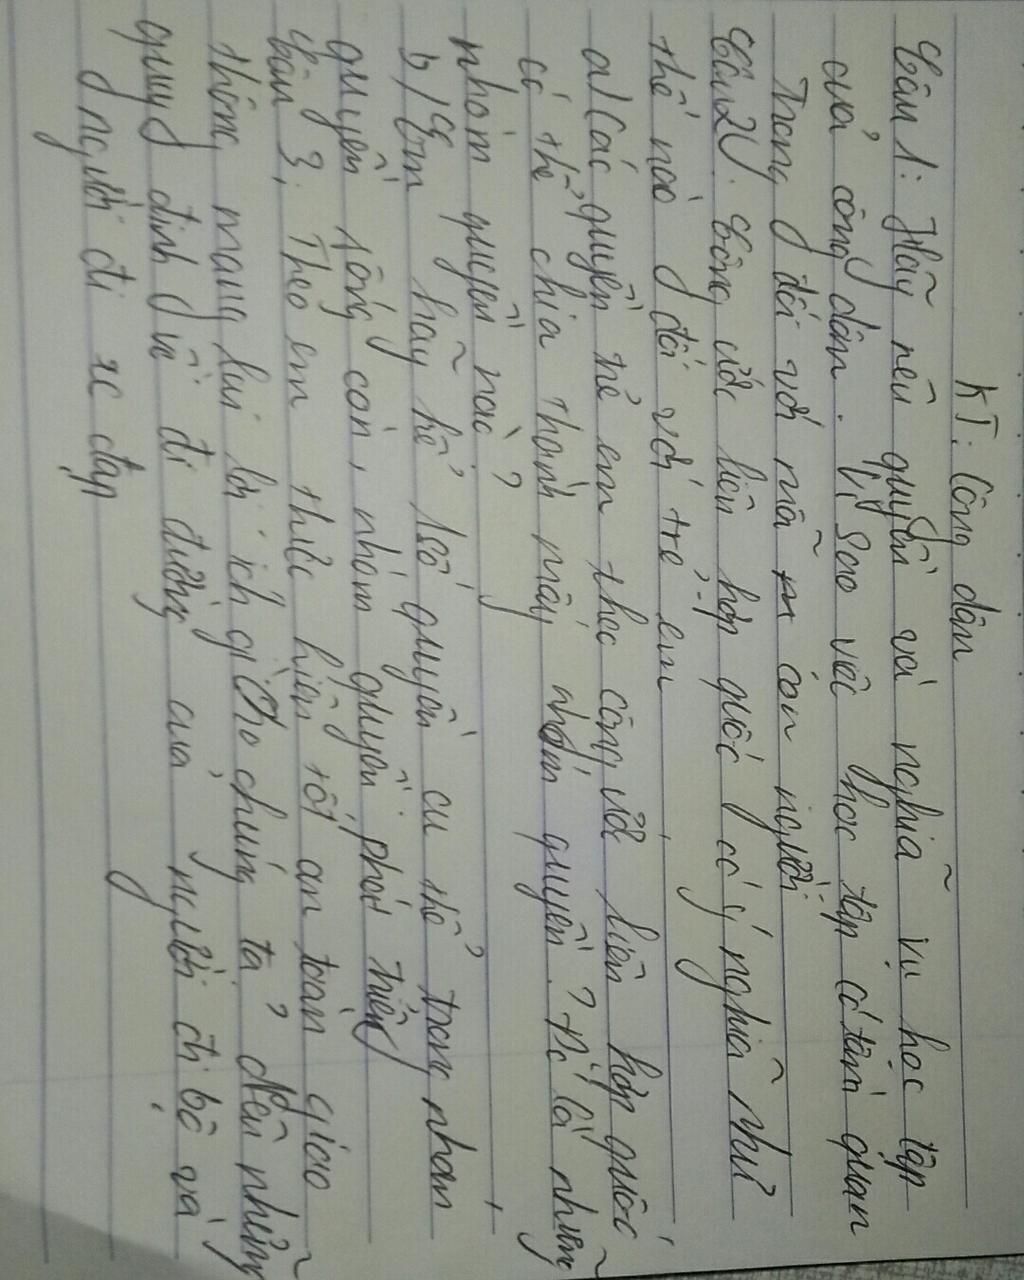 KT: Công dân
Câu 1: Hãy nêu quyền và nghĩa vụ học tập
của công dân. Vì sao việc học tập có tầm quan
trong đối với mỗi con người
Câu 2: Công ước liên hợp quốc có ý nghĩa như
thế nào đối với trẻ em
a/ Các quyền trẻ em theo công ước liên hợp quốc
có thể chia thành mấy nhóm quyền? Đó là những
nhóm quyền nào?
b/ Em hãy kể 1 số quyền cụ thể trong nhóm
quyền sống còn, nhóm quyền phát triển
Câu 3: Theo em thức hiện tốt an toàn giao
thông mang lại lợi ích gì cho chúng ta? Nêu những
quy định về đi đường của người đi bộ và
người đi xe đạp